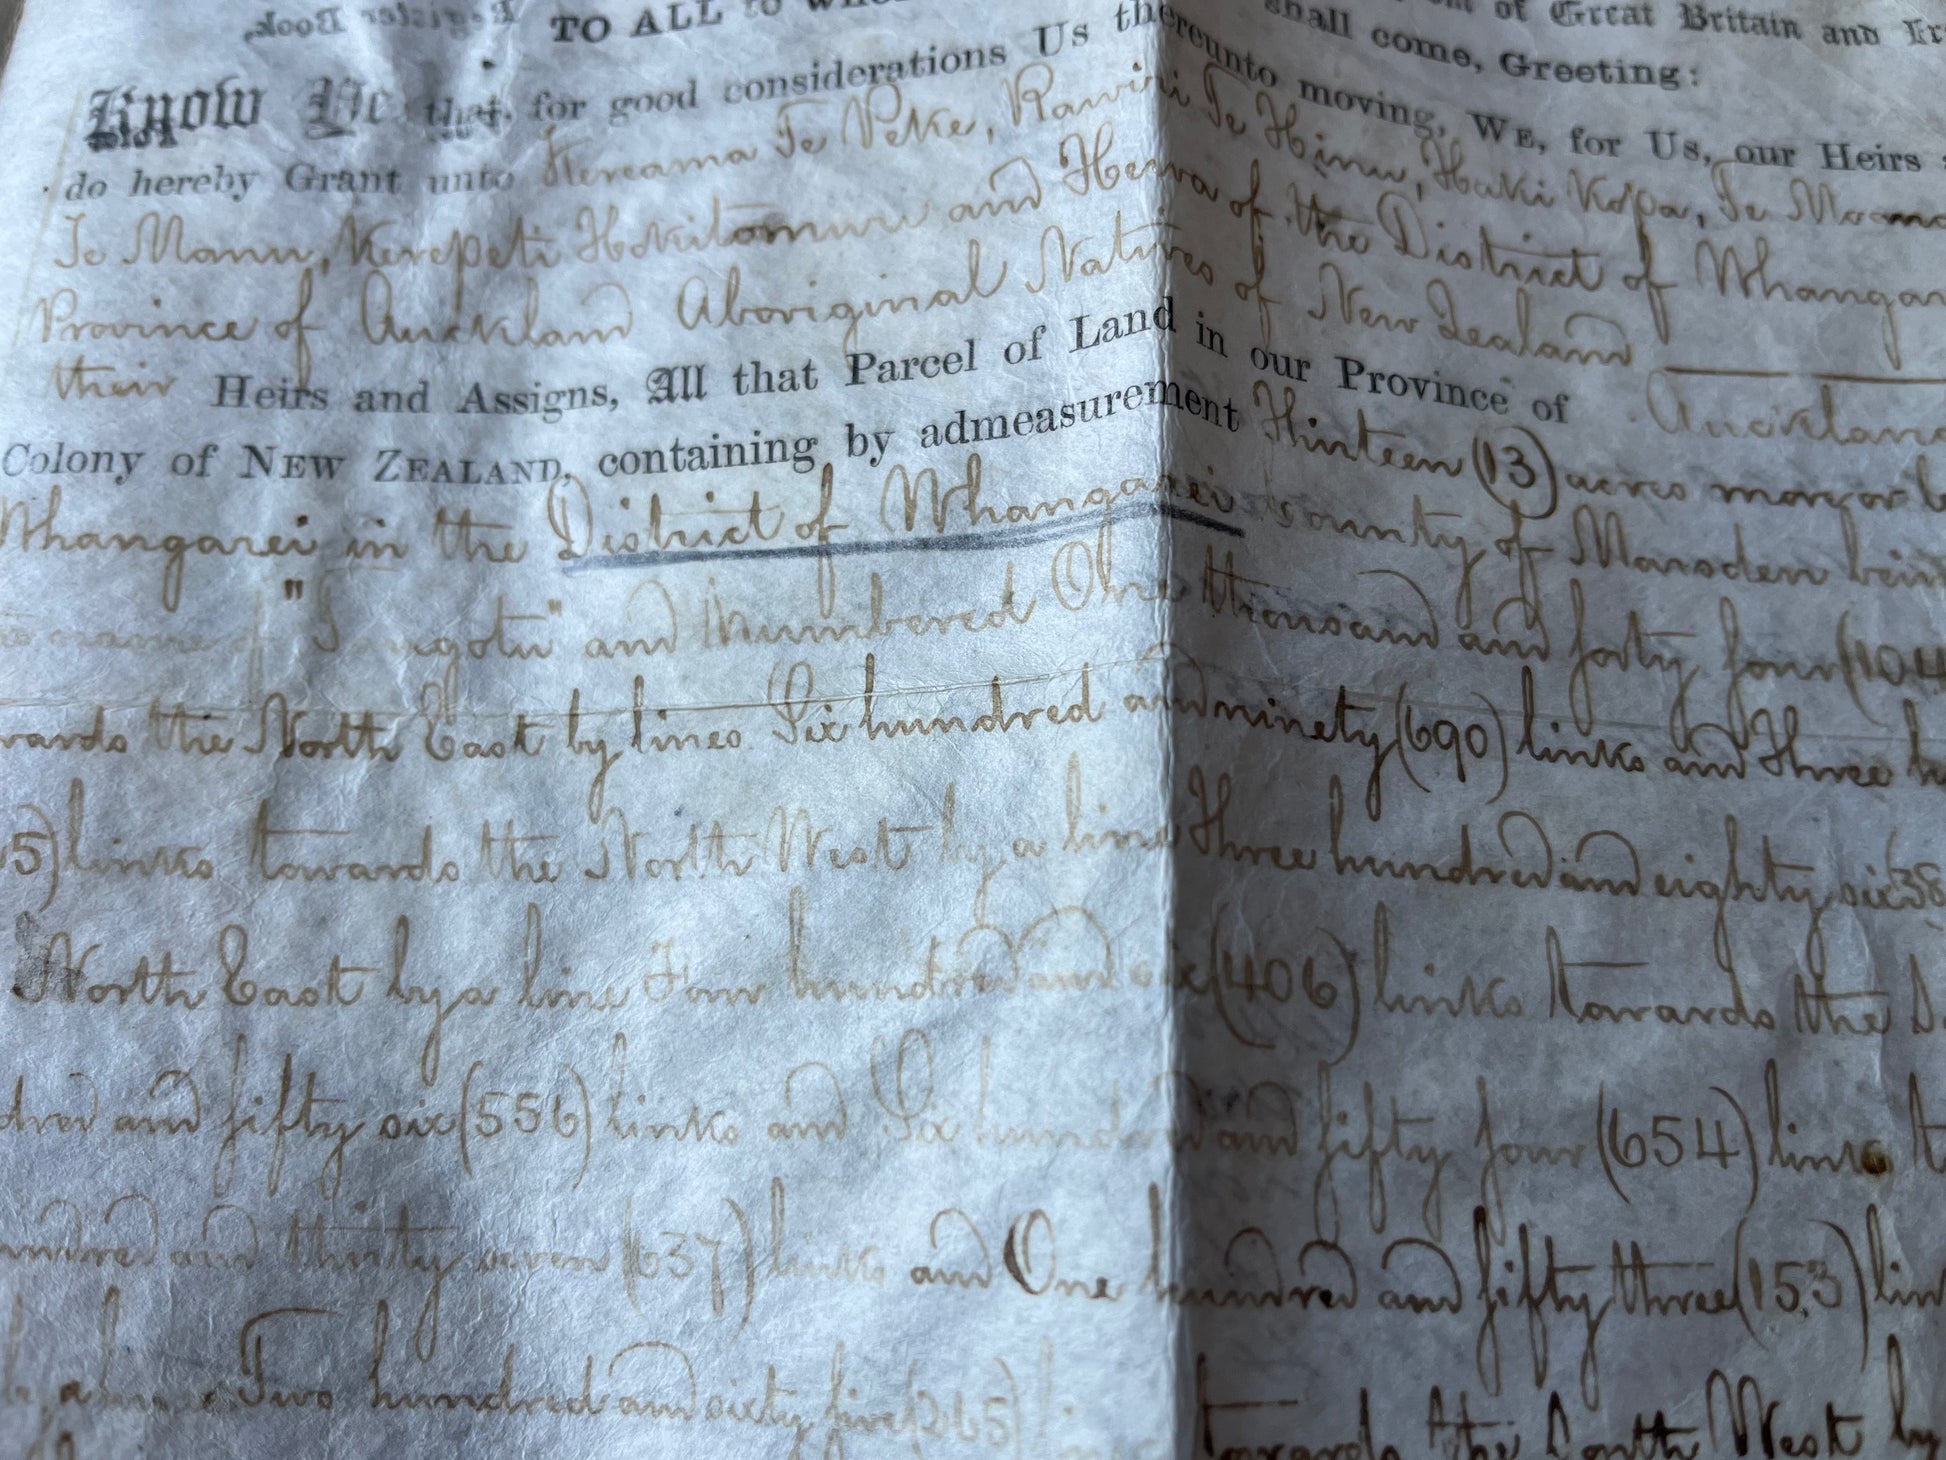 TO ALL to of Great Britain and
shall come, Greeting:
Know Ye that, for good considerations Us thereunto moving, WE, for Us, our Heirs
do hereby Grant unto Hereama Te Peke, Rawiri Te Hinu, Haki Kopa, Te
Te Manu, Kerepeti Hokitomuri and Hewa of the District of Whangar
Province of Auckland Aboriginal Natives of New Zealand
their Heirs and Assigns, All that Parcel of Land in our Province of Auckland
Colony of NEW ZEALAND, containing by admeasurement Thirteen (13) acres more or
Whangarei in the District of Whangarei County of Marsden
name of " " and Numbered One thousand and forty four (104
wards the North East by lines Six hundred and ninety (690) links and Three
5) links towards the North West by a line Three hundred and eighty six (38
North East by a line Four hundred and six (406) links towards the
dred and fifty six (556) links and Six hundred and fifty four (654) links
undred and thirty seven (637) links and One hundred and fifty three (153) lin
by a line Two hundred and sixty five (265) towards the South West by